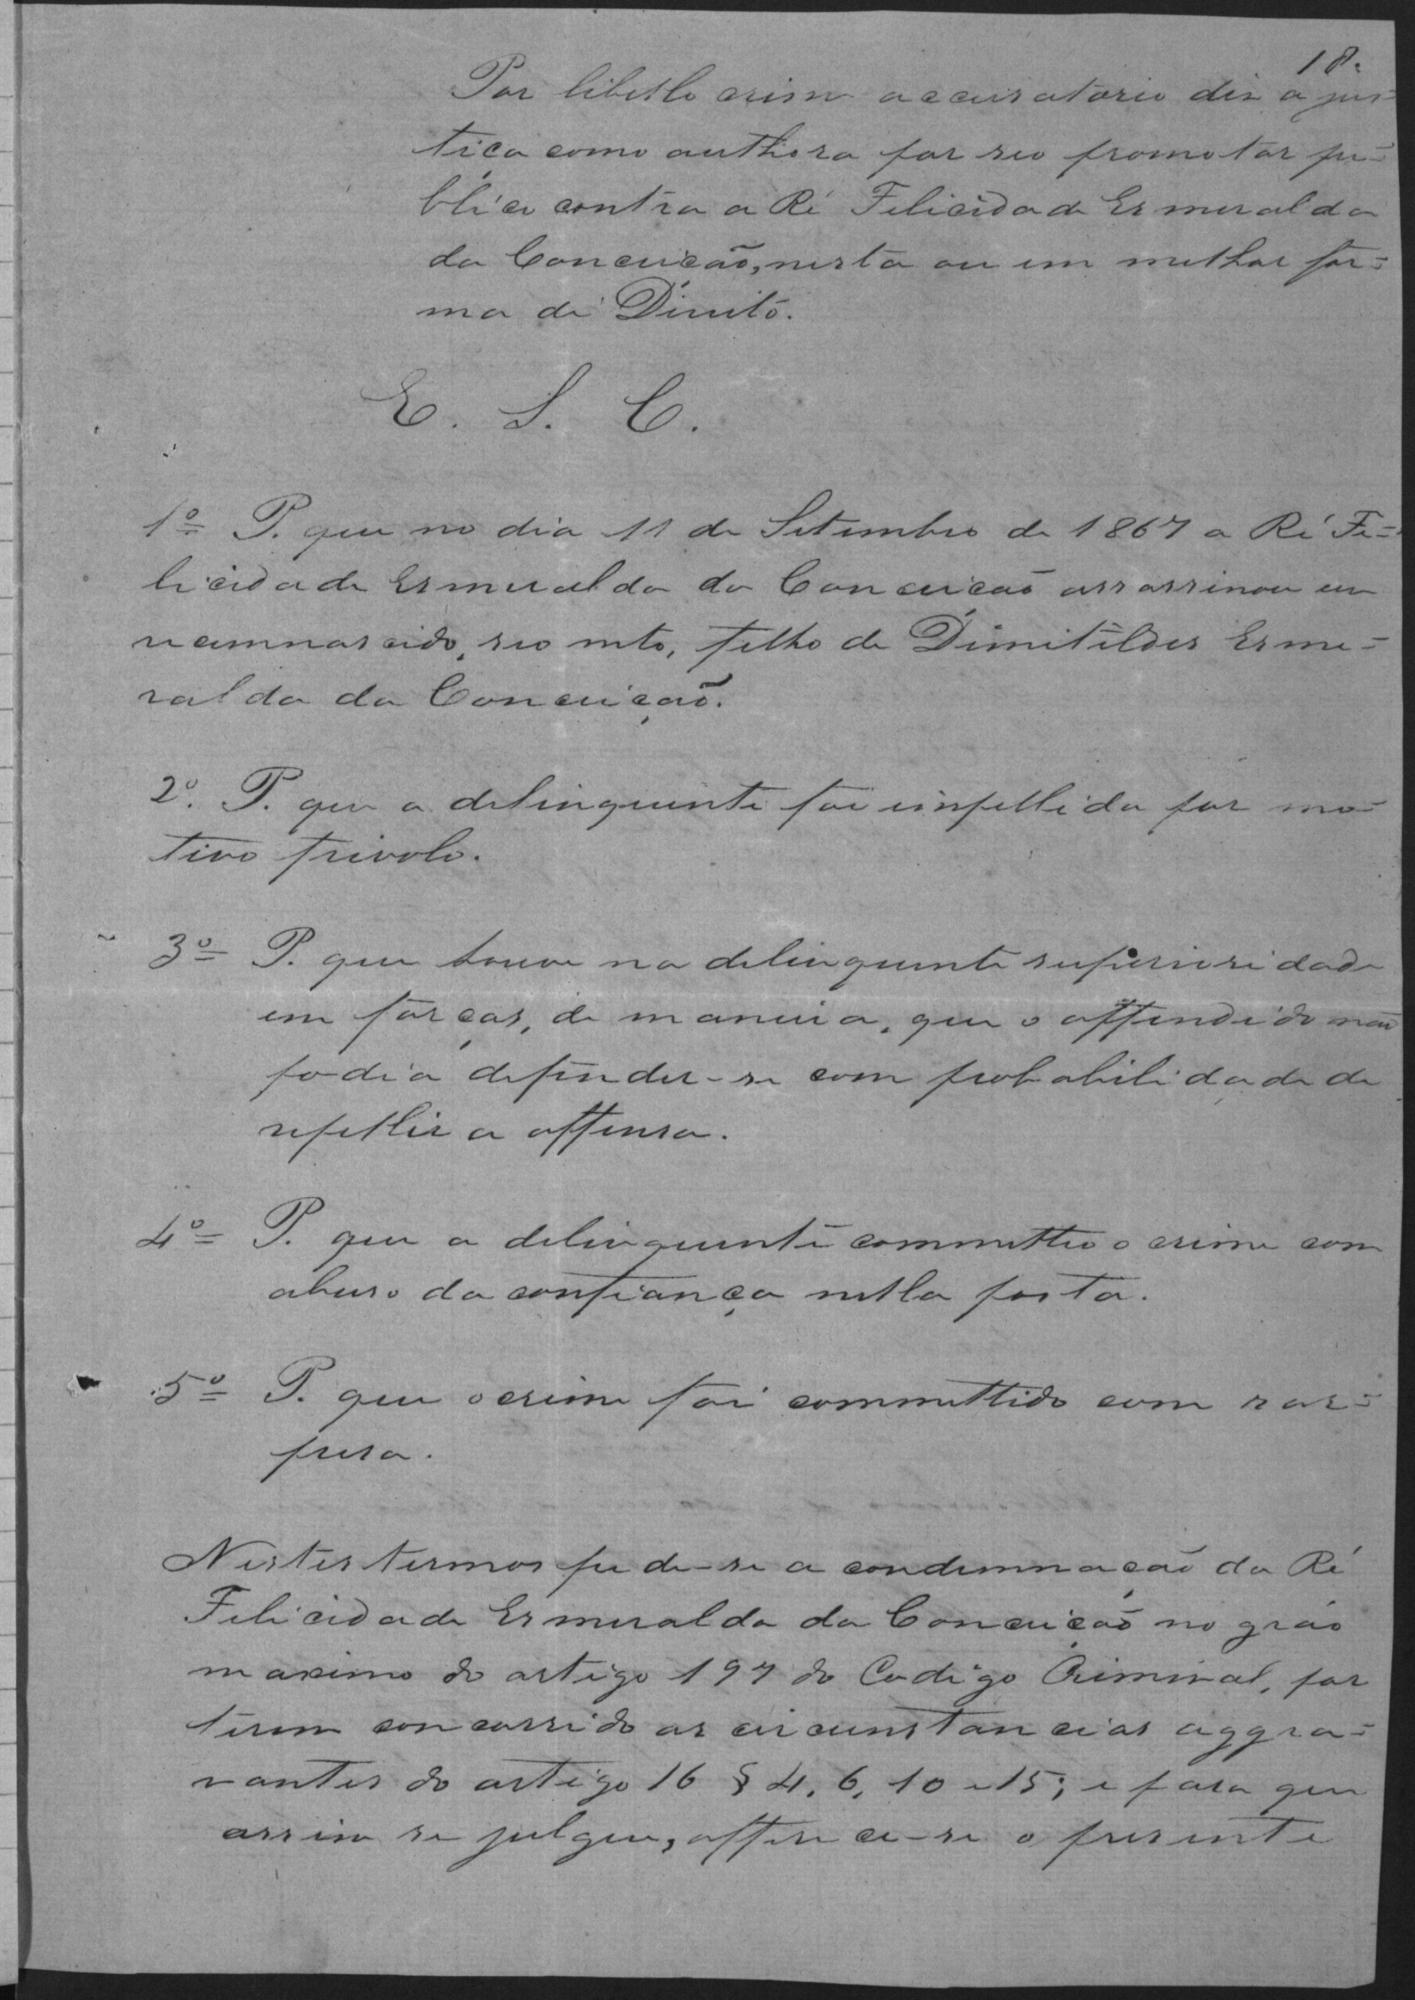 18.
Por libello crime accusatorio diz a jus=
tiça como authora por seo promotor pu=
blico contra a Ré Felicidade Esmeralda
da Conceicão, nesta ou em melhor for=
ma de Direito.
E. S. C.
1º P. que no dia 11 de Setembro de 1867 a Ré Fe=
licidade Esmeralda da Conceicão assassinou um
recemnascido, seo neto, filho de Dimitildes Esme=
ralda da Conceição.
2º. P. que a delinquente foi impellida por mo=
tivo frivolo.
3º P. que houve na delinquente superioridade
em forças, de maneira, que o offendido não
podia defender-se com probabilidade de
repellir a offensa.
4º P. que a delinquente commetteo o crime com
abuso da confiança nella posta.
5º P. que o crime foi commettido com sor=
presa.
Nestes termos pede-se a condemnação da Ré
Felicidade Esmeralda da Conceição no gráo
maximo do artigo 197 do Codigo Criminal, por
terem concorrido as circunstancias aggra=
vantes do artigo 16 § 4, 6, 10 e 15; e para que
assim se julgue, offerece-se o presente